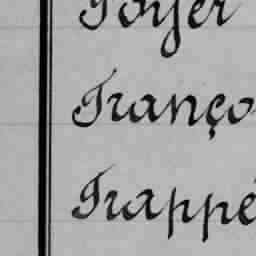 Foyer
Franço
Frappé